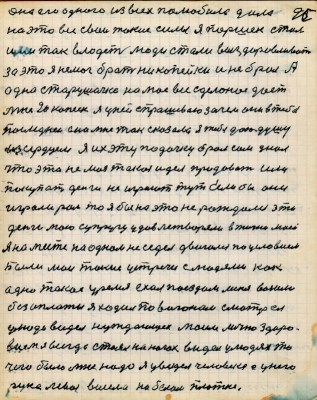 она его одного из всех полюбила дала 25
на это все свои такие силы я поришел стал
ими так владеть люди стали выздоравливать
за это я немог брат никопейки и не брал А
одна старушачка на мое все сделоное дает
мне 20 копеек я у ней спрашиваю зачем они
последнее она мне так сказала я тибе даю душу
сердцем я их эту подачку брал сам знал
что эта не моя такая идея продовать силу
покупат денги не играют тут если бы они
играли рол то я бы на это не рождался эта
денги мою супругу удовлетворяли в жизни моей
я на месте на одном не сидел двигался по условиям
Были мои такие встречи с людями как
адно такое время ехал поездом меня возили
без оплаты я ходил по вагонам смотрел
людях видел нуждающее моим можно здоро-
вием я всегда стоял на ногах видел у людях то
чего было мне надо я увидел человека у него
рука левая висела на белам платке.